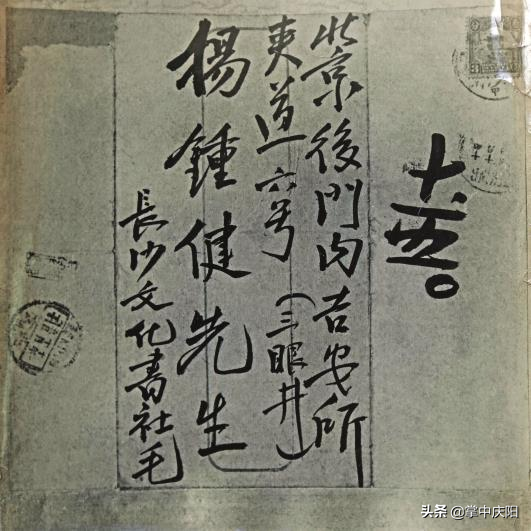 北京後門内吉安所
夾道六号(三眼井)
楊鍾健先生
長沙文化書社毛
头条 @掌中庆阳